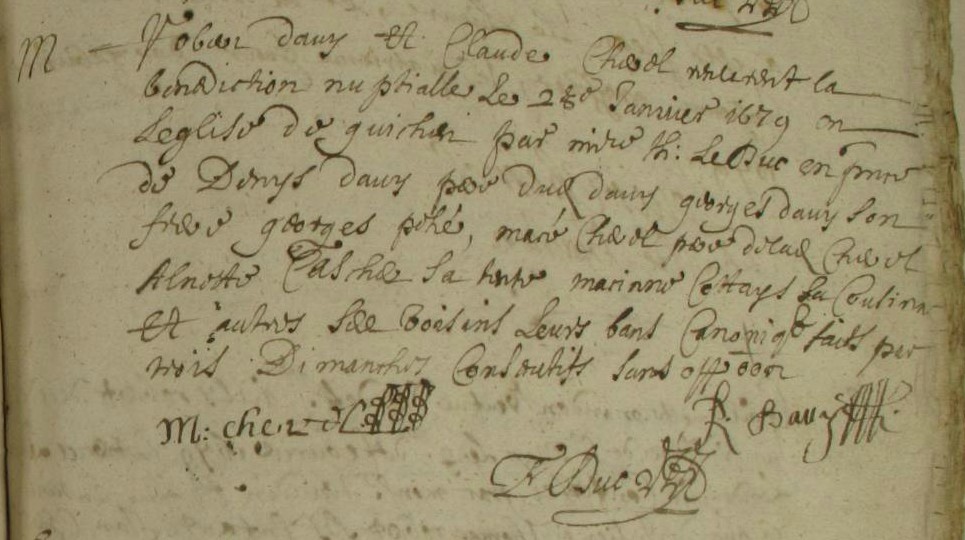 M - Robert dauy Et Claude Cheel receurent la
benediction nuptialle le 28e Januier 1679 en
leglise de guichen par mire th: LeDuc en pnce
de Denys dauy pere dud dauy georges dauy son
frere georges pché, macé Cheel pere de lad Cheel
tasche sa tente Cottays sa Cousine
Et autres voisins leurs bans Canoniqs faits par
trois Dimanches Consecutifs sans oppoon
M: cherel
R Dauy
T Duc